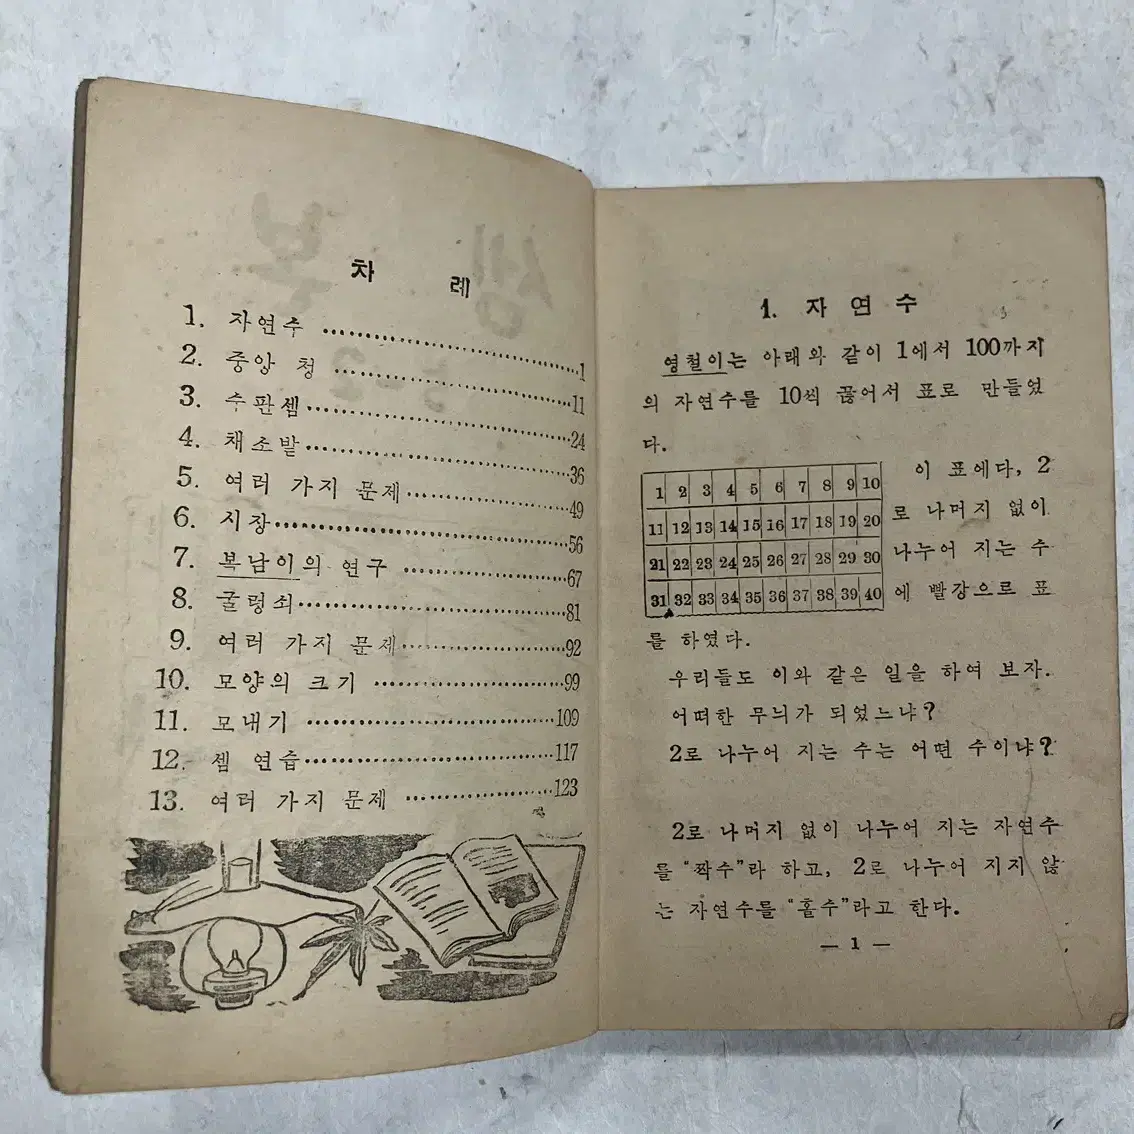 차 례
1. 자연수 ........ 1
2. 중앙 청 ........ 11
3. 수판셈 ........ 24
4. 채소밭 ........ 36
5. 여러 가지 문제 ........ 49
6. 시장 ........ 56
7. 복남이의 연구 ........ 67
8. 굴렁쇠 ........ 81
9. 여러 가지 문제 ........ 92
10. 모양의 크기 ........ 99
11. 모내기 ........ 109
12. 셈 연습 ........ 117
13. 여러 가지 문제 ........ 123
1. 자 연 수
영철이는 아래와 같이 1에서 100까지
의 자연수를 10씩 끊어서 표로 만들었
다.
1 2 3 4 5 6 7 8 9 10
11 12 13 14 15 16 17 18 19 20
21 22 23 24 25 26 27 28 29 30
31 32 33 34 35 36 37 38 39 40
이 표에다, 2
로 나머지 없이
나누어 지는 수
에 빨강으로 표
를 하였다.
우리들도 이와 같은 일을 하여 보자.
어떠한 무늬가 되었느냐?
2로 나누어 지는 수는 어떤 수이냐?
2로 나머지 없이 나누어 지는 자연수
를 "짝수"라 하고, 2로 나누어 지지 않
는 자연수를 "홀수"라고 한다.
— 1 —